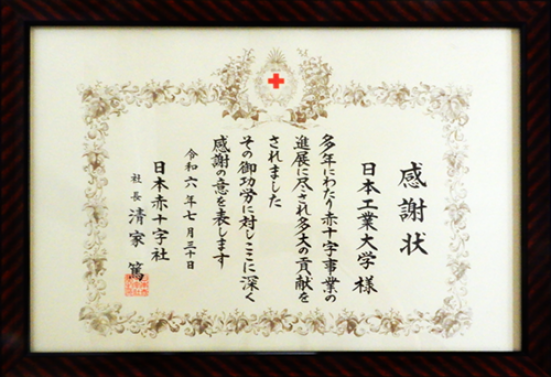 感謝状
日本工業大学 様
多年にわたり赤十字事業の
進展に尽され多大の貢献を
されました
その御功労に対しここに深く
感謝の意を表します
令和六年七月三十日
日本赤十字社
社長 清家 篤